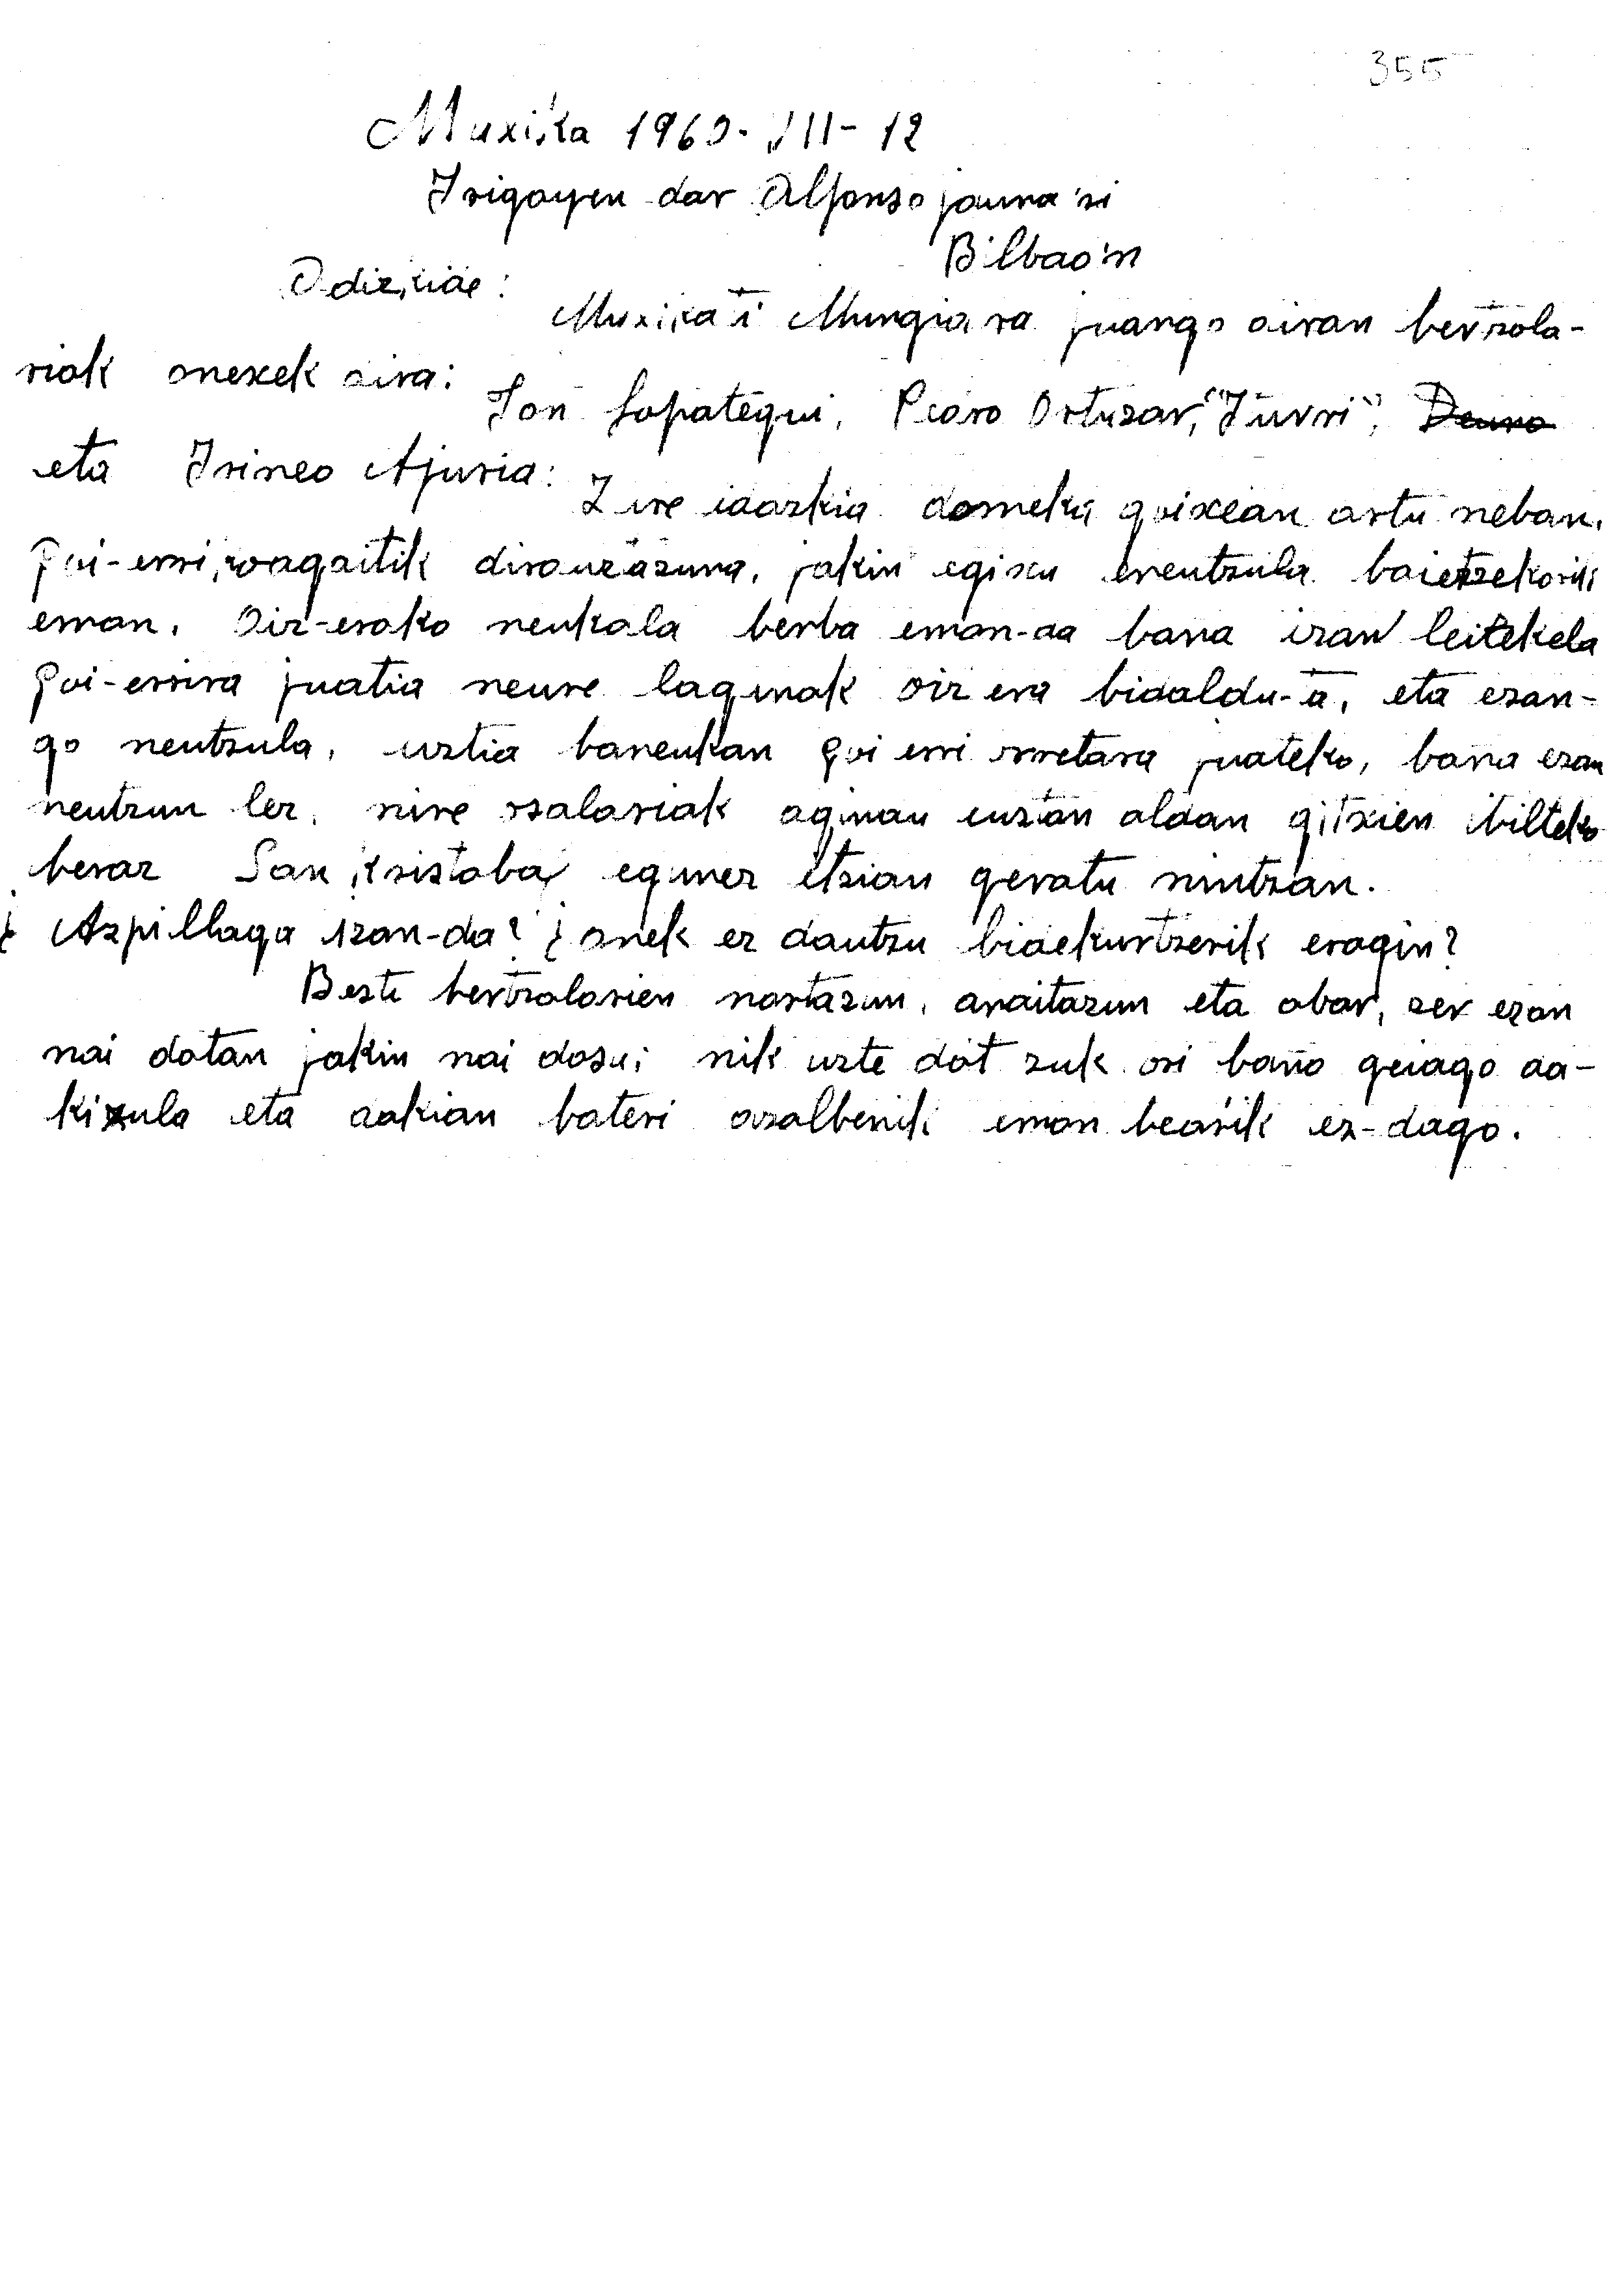 355
Muxika 1960-VII-12
Irigoyen dar Alfonso jauna'ri
Bilbao'n
Odizkide:
Muxika'ti Mungiara juango diran bertzola-
riak onexek dira:
Jon Lopategui, Pedro Ortuzar, "Jurri",
eta Irineo Ajuria:
Zure idazkia domeka goixean artu neban.
Goi-erri zagaitik dirauzazuna, jakin egixu eneutzula baietzekorik
eman. Oiz-erako neukala berba eman-da bana izan leitekela
Goi-errira juatia neure lagunak oiz era bidaldu-ta, eta esan-
go neutzula, uztia baneukan Goi erri orretara juateko, bana ezan
neutzun lez, nire osalariak agindu eustan aldan gitxien ibilteko
beraz San Kristobal egunez etxian geratu nintzan.
¿ Azpillaga izan-da? ¿ onek ez dautzu bidekurtzerik eragin?
Beste bertzolarien nortazun, anaitazun eta abar, zer ezan
nai dotan jakin nai dozu; nik uzte dot zuk ori baño geiago da-
kizula eta dakian bateri azalbenik eman bearik ez-dago.